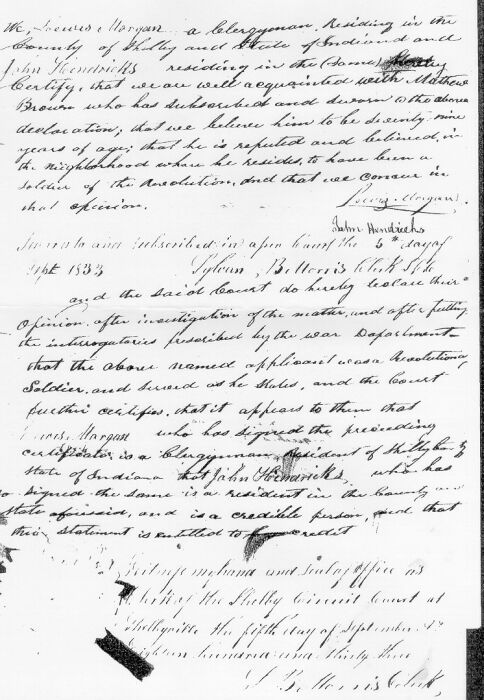 We, Loewis Morgan a Clergyman, Residing in the
County of Shelby and State of Indiana and
John Hendricks residing in the (same) hereby
Certify, that we are well acquainted with Mathew
Brown who has subscribed and sworn to the above
declaration; that we believe him to be seventy nine
years of age; that he is reputed and believed, in
the neighborhood where he resides, to have been a
soldier of the Revolution, and that we concur in
that opinion. Loewis Morgan,
John Hendricks
Sworn to and subscribed in open Court the 5th day of
Sept 1833 Sylvan B. Morris Clerk
and the said Court do hereby declare their
Opinion, after investigation of the matter, and after putting
the interrogatories prescribed by the war Department
that the above named applicant was a Revolutionary
Soldier, and served as he states, and the Court
further certifies, that it appears to them that
Loewis Morgan who has signed the preceeding
certificate is a Clergyman, resident of Shelby County
State of Indiana that John Hendricks, who has
so signed the same is a resident in the County and
state aforesaid, and is a credible person, and that
their statement is entitled to credit
my hand and seal of office as
Clerk of the Shelby Circuit Court at
Shelbyville the fifth day of September AD
Eighteen hundred and thirty three
S. B. Morris Clerk,